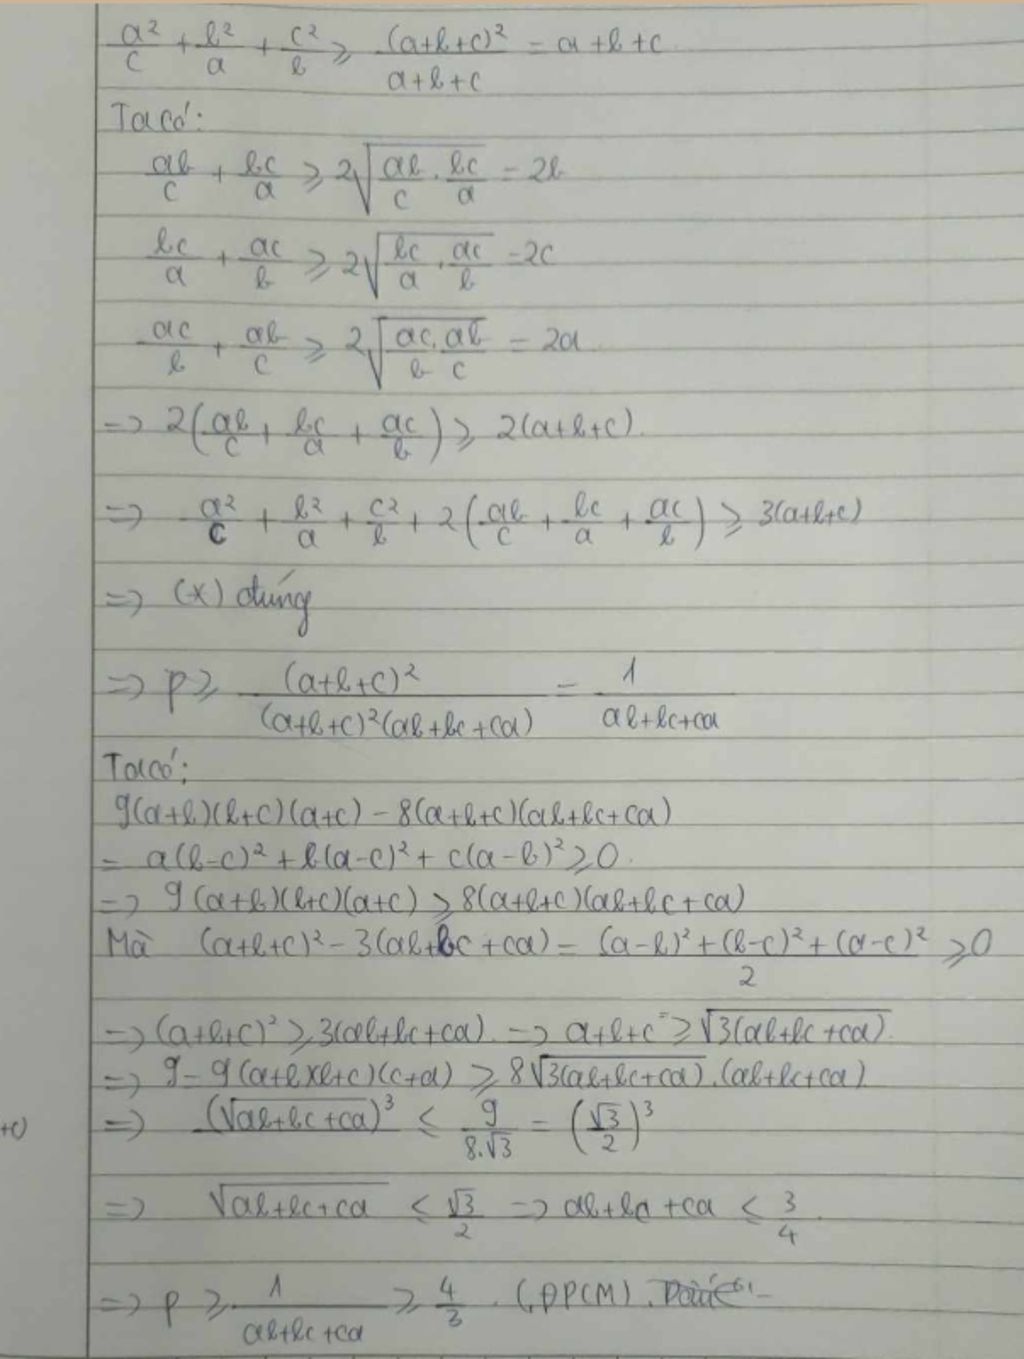 a²/c + b²/a + c²/b ⩾ (a+b+c)²/(a+b+c) = a+b+c
Ta có:
ab/c + bc/a ⩾ 2√(ab/c . bc/a) = 2b
bc/a + ac/b ⩾ 2√(bc/a . ac/b) = 2c
ac/b + ab/c ⩾ 2√(ac/b . ab/c) = 2a
=> 2(ab/c + bc/a + ac/b) ⩾ 2(a+b+c).
=> a²/c + b²/a + c²/b + 2(ab/c + bc/a + ac/b) ⩾ 3(a+b+c)
=> (x) đúng
=> p ⩾ (a+b+c)²/((a+b+c)²(ab+bc+ca)) = 1/(ab+bc+ca)
Ta có:
9(a+b)(b+c)(a+c) - 8(a+b+c)(ab+bc+ca)
= a(b-c)² + b(a-c)² + c(a-b)² ⩾ 0.
=> 9(a+b)(b+c)(a+c) ⩾ 8(a+b+c)(ab+bc+ca)
Mà (a+b+c)² - 3(ab+bc+ca) = ((a-b)² + (b-c)² + (a-c)²)/2 ⩾ 0
=> (a+b+c)² ⩾ 3(ab+bc+ca) => a+b+c ⩾ √(3(ab+bc+ca)).
=> 9 = 9(a+b)(b+c)(c+a) ⩾ 8√(3(ab+bc+ca)).(ab+bc+ca)
+c)
=> (√(ab+bc+ca))³ ⩽ 9/(8.√3) = (√3/2)³
=> √(ab+bc+ca) ⩽ √3/2 => ab+bc+ca ⩽ 3/4.
=> p ⩾ 1/(ab+bc+ca) ⩾ 4/3. (ĐPCM).